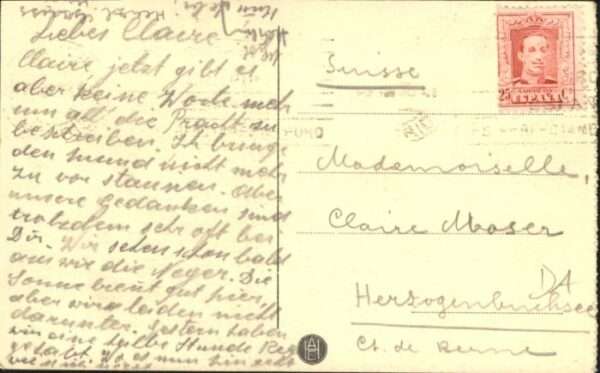 Liebes Claire
Claire jetzt gibt es
aber keine Worte meh
um all die Pracht zu
beschreiben. Ich bringe
den mund nicht mehr
zu vor staunen. Aber
unsere Gedanken sind
trotzdem sehr oft bei
Dir. Wir sehen schon bald
aus wie die Neger. Die
Sonne brent gut hier,
aber wir leiden nicht
darunter. Gestern haben
wir eine halbe Stunde Reg
gehabt.
Suisse
25 ESPAÑA
Mademoiselle,
Claire Moser
DA
Herzogenbuchsee
Ct. de Berne